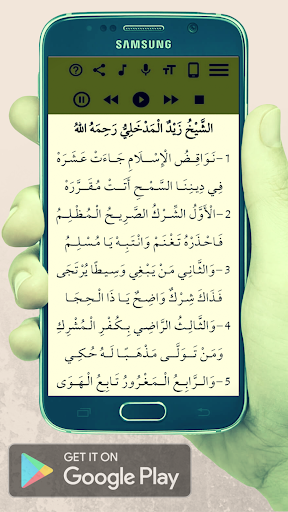 SAMSUNG
الشَّيْخُ زَيْدٌ الْمَدْخَلِيُّ رَحِمَهُ اللهُ
1- نَوَاقِضُ الْإِسْلَامِ جَاءَتْ عَشَرَهْ
فِي دِينِنَا السَّمْحِ أَتَتْ مُقَرَّرَهْ
2- الْأَوَّلُ الشِّرْكُ الصَّرِيحُ الْمُظْلِمُ
فَاحْذَرْهُ تَغْنَمْ وَانْتَبِهْ يَا مُسْلِمُ
3- وَالثَّانِي مَنْ يَبْغِي وَسِيطًا يُرْتَجَى
فَذَاكَ شِرْكٌ وَاضِحٌ يَا ذَا الْحِجَا
4- وَالثَّالِثُ الرَّاضِي بِكُفْرِ الْمُشْرِكِ
وَمَنْ تَوَلَّى مَذْهَبًا لَهُ حُكِي
5- وَالرَّابِعُ الْمَغْرُورُ تَابِعُ الْهَوَى
GET IT ON
Google Play